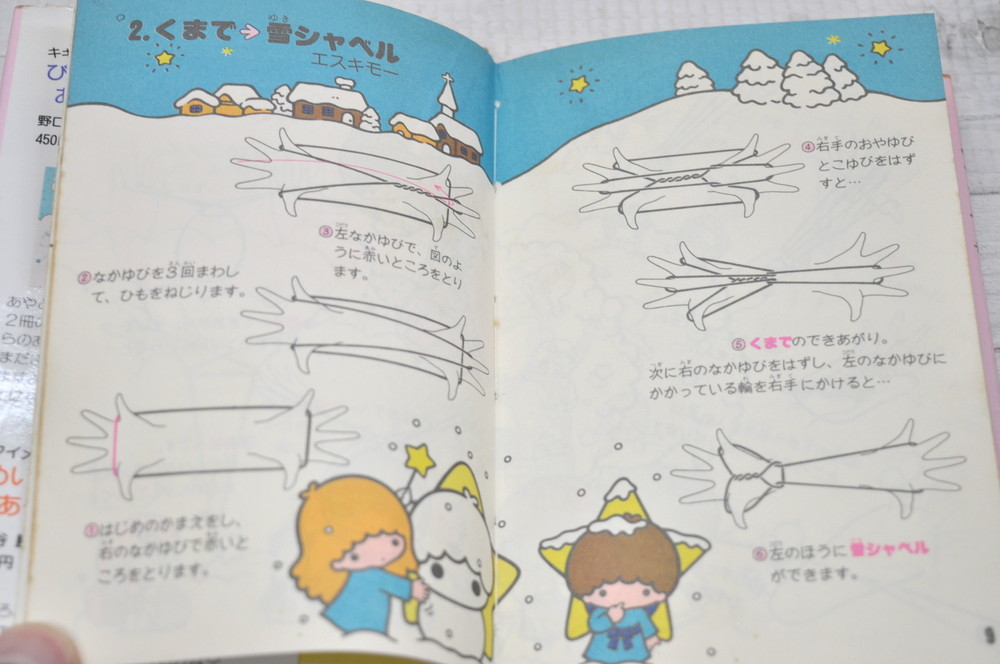 2.くまで→雪シャベル
エスキモー
①はじめのかまえをし、
右のなかゆびで赤いと
ころをとります。
②なかゆびを3回まわし
て、ひもをねじります。
③左なかゆびで、図のよ
うに赤いところをとり
ます。
④右手のおやゆび
とこゆびをはず
すと…
⑤くまでのできあがり。
次に右のなかゆびをはずし、左のなかゆびに
かかっている輪を右手にかけると…
⑥左のほうに雪シャベル
ができます。
9
野口
450
あやと
2冊の
らのお
まだ
円